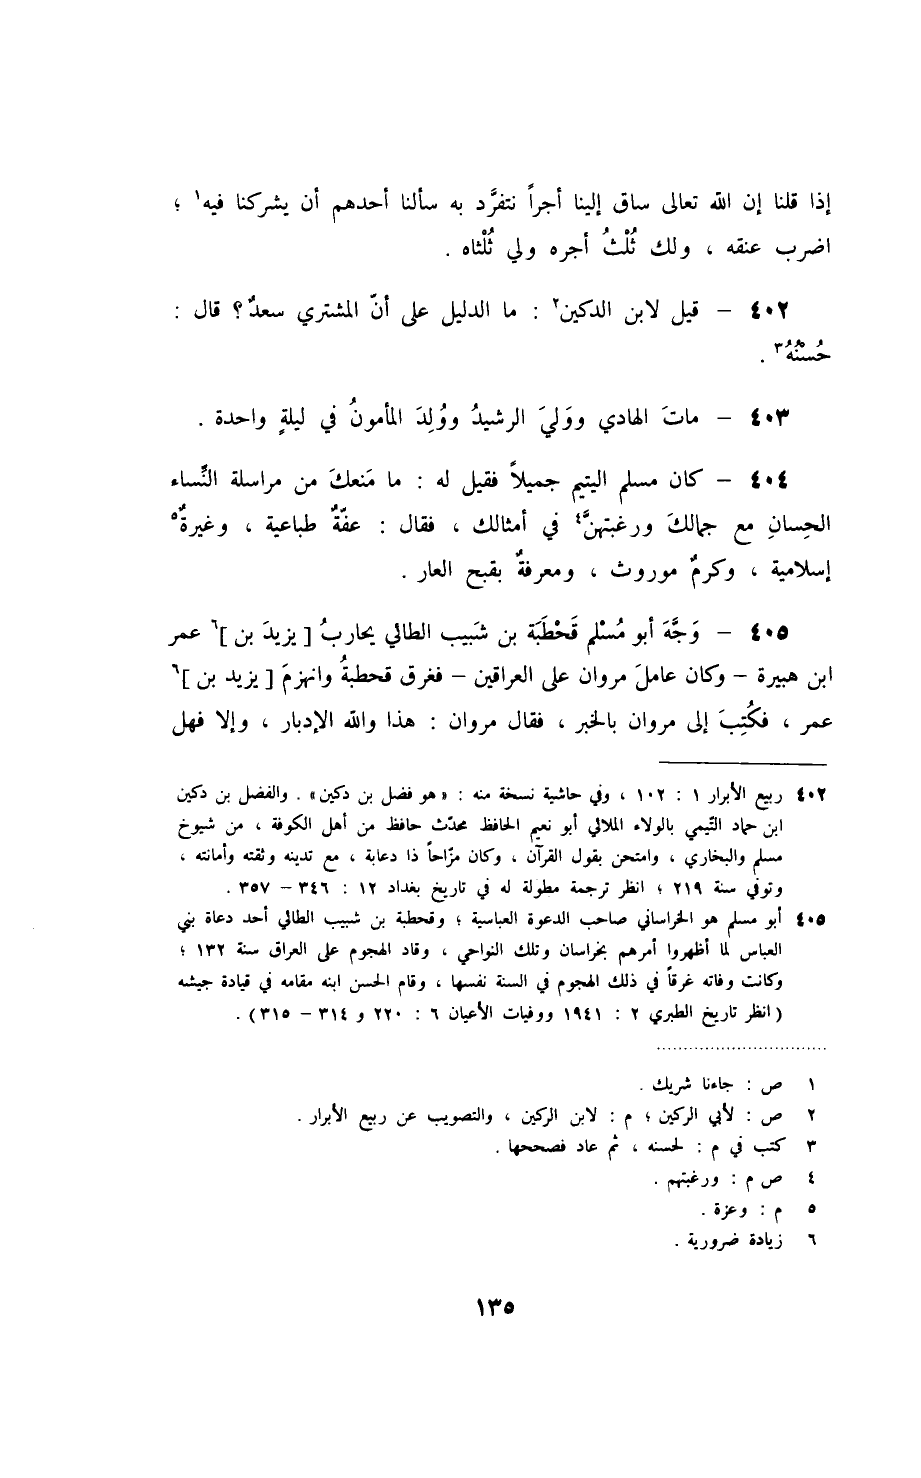 إذا قلنا إن الله تعالى ساق إلينا أجراً نتفرَّد به سألنا أحدهم أن يشركنا فيه١ ؛
اضرب عنقه ، ولك ثُلْثُ أجره ولي ثُلْثاه .
٤٠٢ – قيل لابن الدكين٢ : ما الدليل على أنّ المشتري سعدٌ ؟ قال :
حُسْنُهُ٣ .
٤٠٣ – ماتَ الهادي ووَليَ الرشيدُ ووُلِدَ المأمونُ في ليلةٍ واحدة .
٤٠٤ – كان مسلم اليتيم جميلاً فقيل له : ما مَنعكَ من مراسلة النِّساء
الحِسانِ مع جمالكَ ورغبتهنَّ٤ في أمثالك ، فقال : عفّةٌ طباعية ، وغيرةٌ٥
إسلامية ، وكرمٌ موروث ، ومعرفةٌ بقبح العار .
٤٠٥ – وَجَّهَ أبو مُسْلم قَحْطَبَة بن شَبيب الطائي يحاربُ [ يزيدَ بن ]٦ عمر
ابن هبيرة – وكان عاملَ مروان على العراقين – فغرق قحطبةُ وانهزمَ [ يزيد بن ]٦
عمر ، فكُتِبَ إلى مروان بالخبر ، فقال مروان : هذا والله الإدبار ، وإلا فهل
٤٠٢ ربيع الأبرار ١ : ١٠٢ ، وفي حاشية نسخة منه : «هو فضل بن دكين» . والفضل بن دكين
ابن حماد التّيمي بالولاء الملائي أبو نعيم الحافظ محدّث حافظ من أهل الكوفة ، من شيوخ
مسلم والبخاري ، وامتحن بقول القرآن ، وكان مزّاحاً ذا دعابة ، مع تدينه وثقته وأمانته ،
وتوفي سنة ٢١٩ ؛ انظر ترجمة مطولة له في تاريخ بغداد ١٢ : ٣٤٦ – ٣٥٧ .
٤٠٥ أبو مسلم هو الخراساني صاحب الدعوة العباسية ؛ وقحطبة بن شبيب الطائي أحد دعاة بني
العباس لما أظهروا أمرهم بخراسان وتلك النواحي ، وقاد الهجوم على العراق سنة ١٣٢ ؛
وكانت وفاته غرقاً في ذلك الهجوم في السنة نفسها ، وقام الحسن ابنه مقامه في قيادة جيشه
(انظر تاريخ الطبري ٢ : ١٩٤١ ووفيات الأعيان ٦ : ٢٢٠ و ٣١٤ – ٣١٥) .
١ ص : جاءنا شريك .
٢ ص : لأبي الركين ؛ م : لابن الركين ، والتصويب عن ربيع الأبرار .
٣ كتب في م : لحسنه ، ثم عاد فصححها .
٤ ص م : ورغبتهم .
٥ م : وعزة .
٦ زيادة ضرورية .
١٣٥